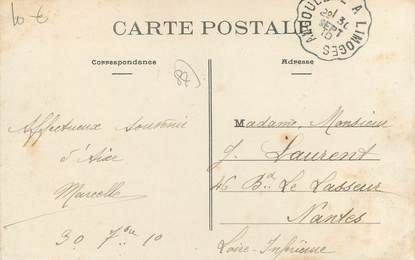 10 €
CARTE POSTALE
ANGOULEME A LIMOGES
2ol 31
SEPT
10
Correspondance
Adresse
87
Madame, Monsieur
Affectueux souvenir
J. Laurent
d'Aixe
46 Bd Le Lasseur
Marcelle
Nantes
30 7bre 10
Loire-Inférieure